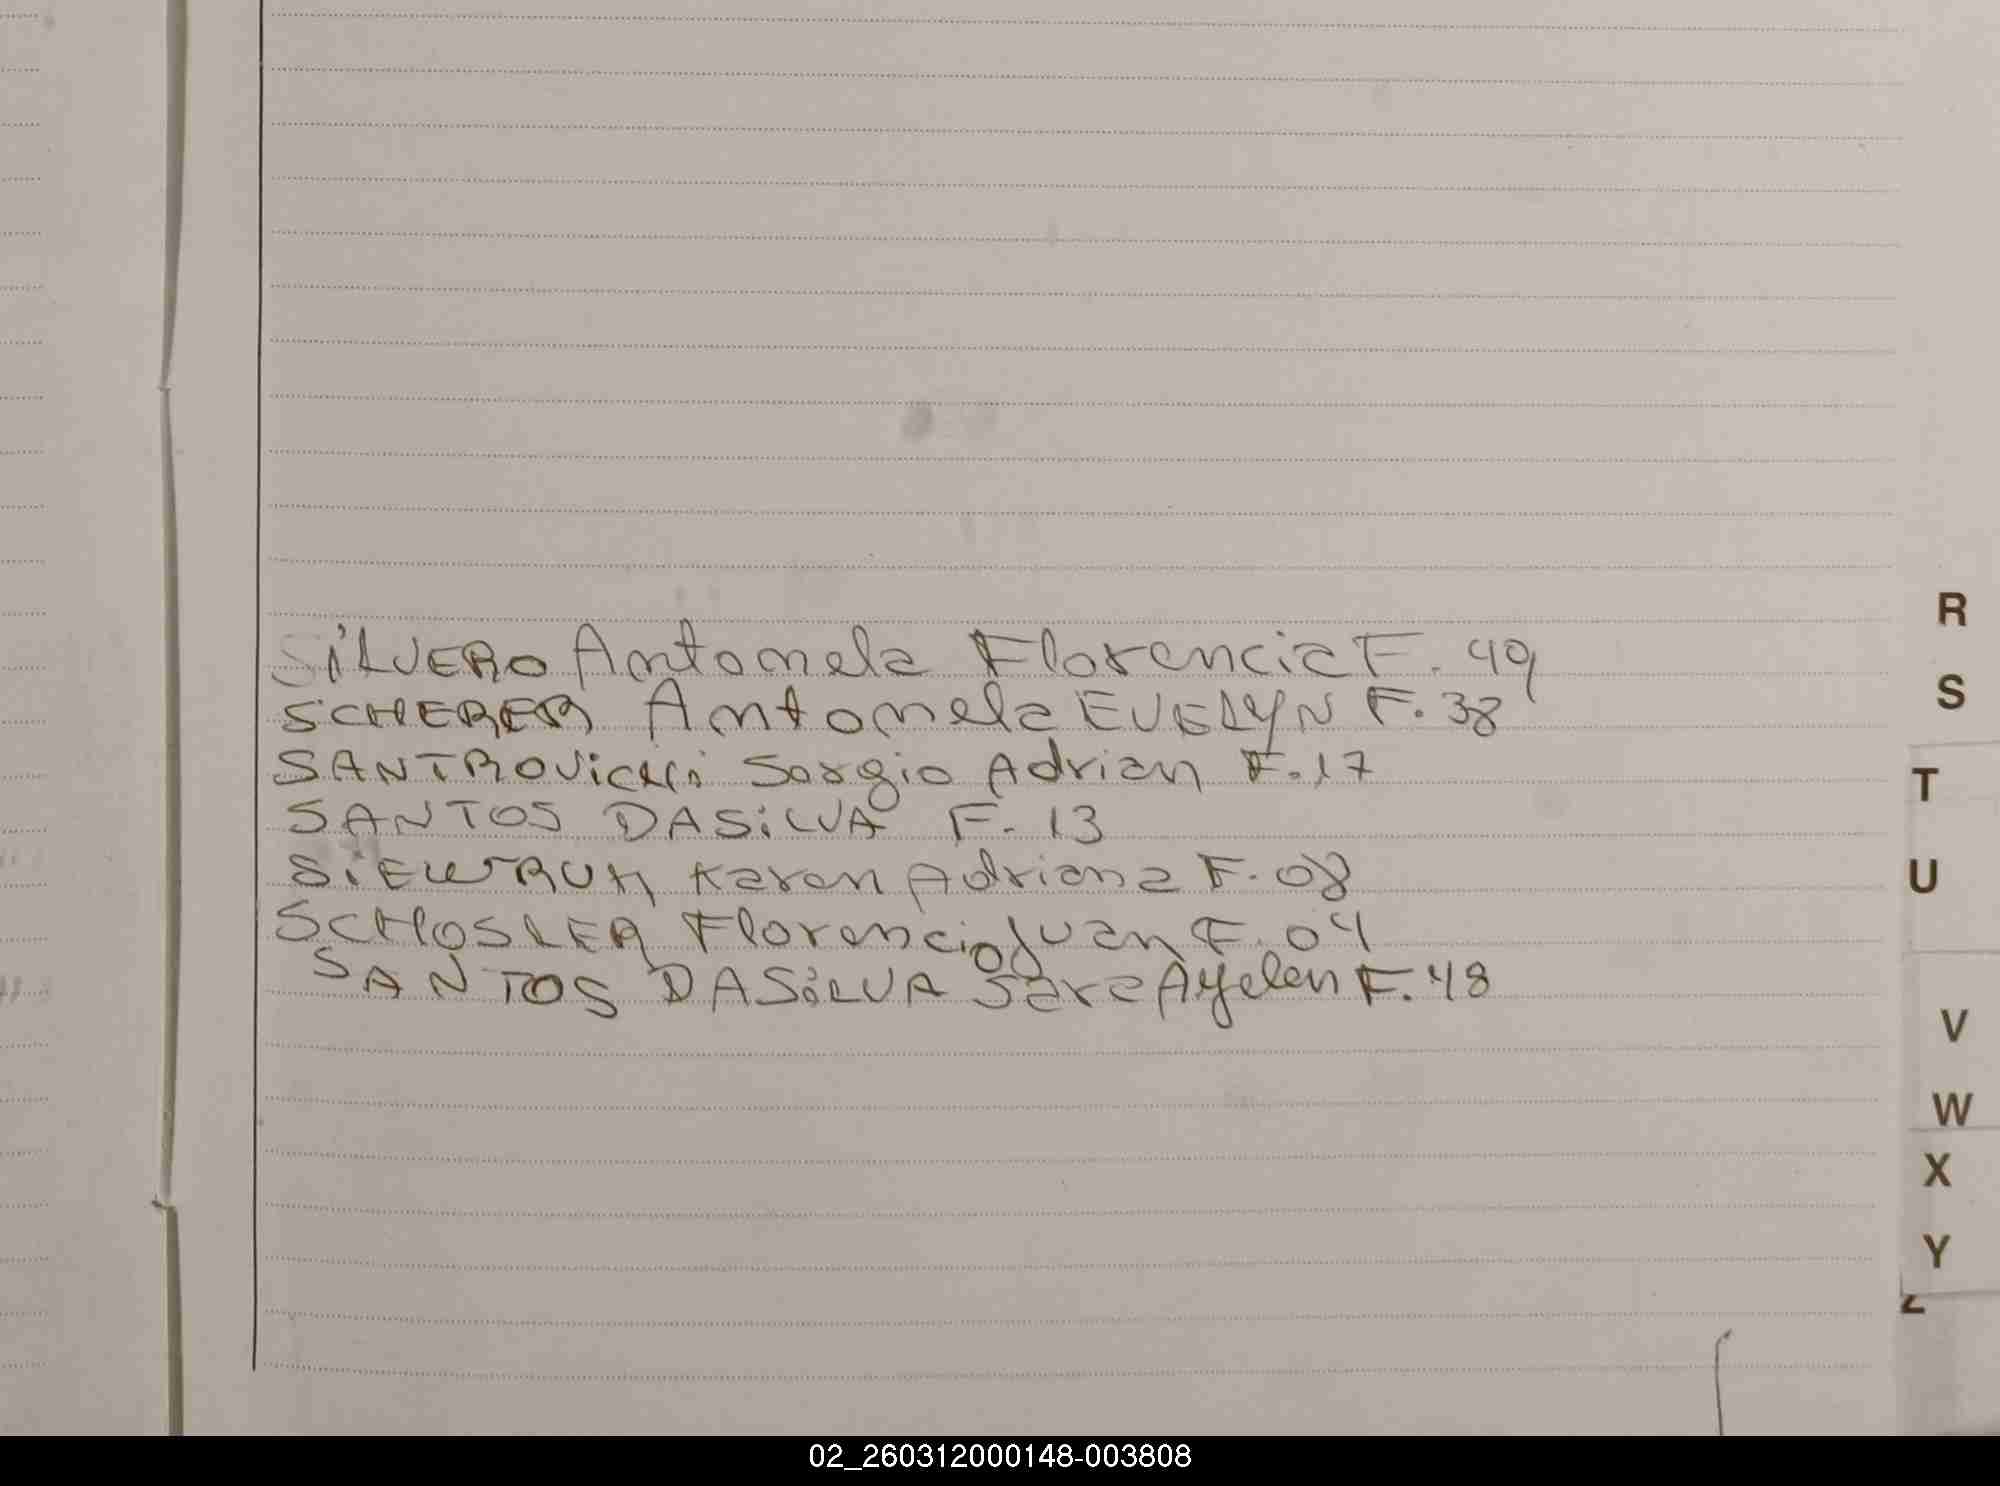 SILVERO Antonela Florencia F. 49
SCHERER Antonela EVELYN F. 38
Sergio Adrian F. 17
SANTOS DASILVA F. 13
Karen Adriana F. 08
SCHOSLER Florencio Juan F. 04
SANTOS DASILVA Sara Ayelen F. 48
R
S
T
U
V
W
X
Y
Z
02_260312000148-003808